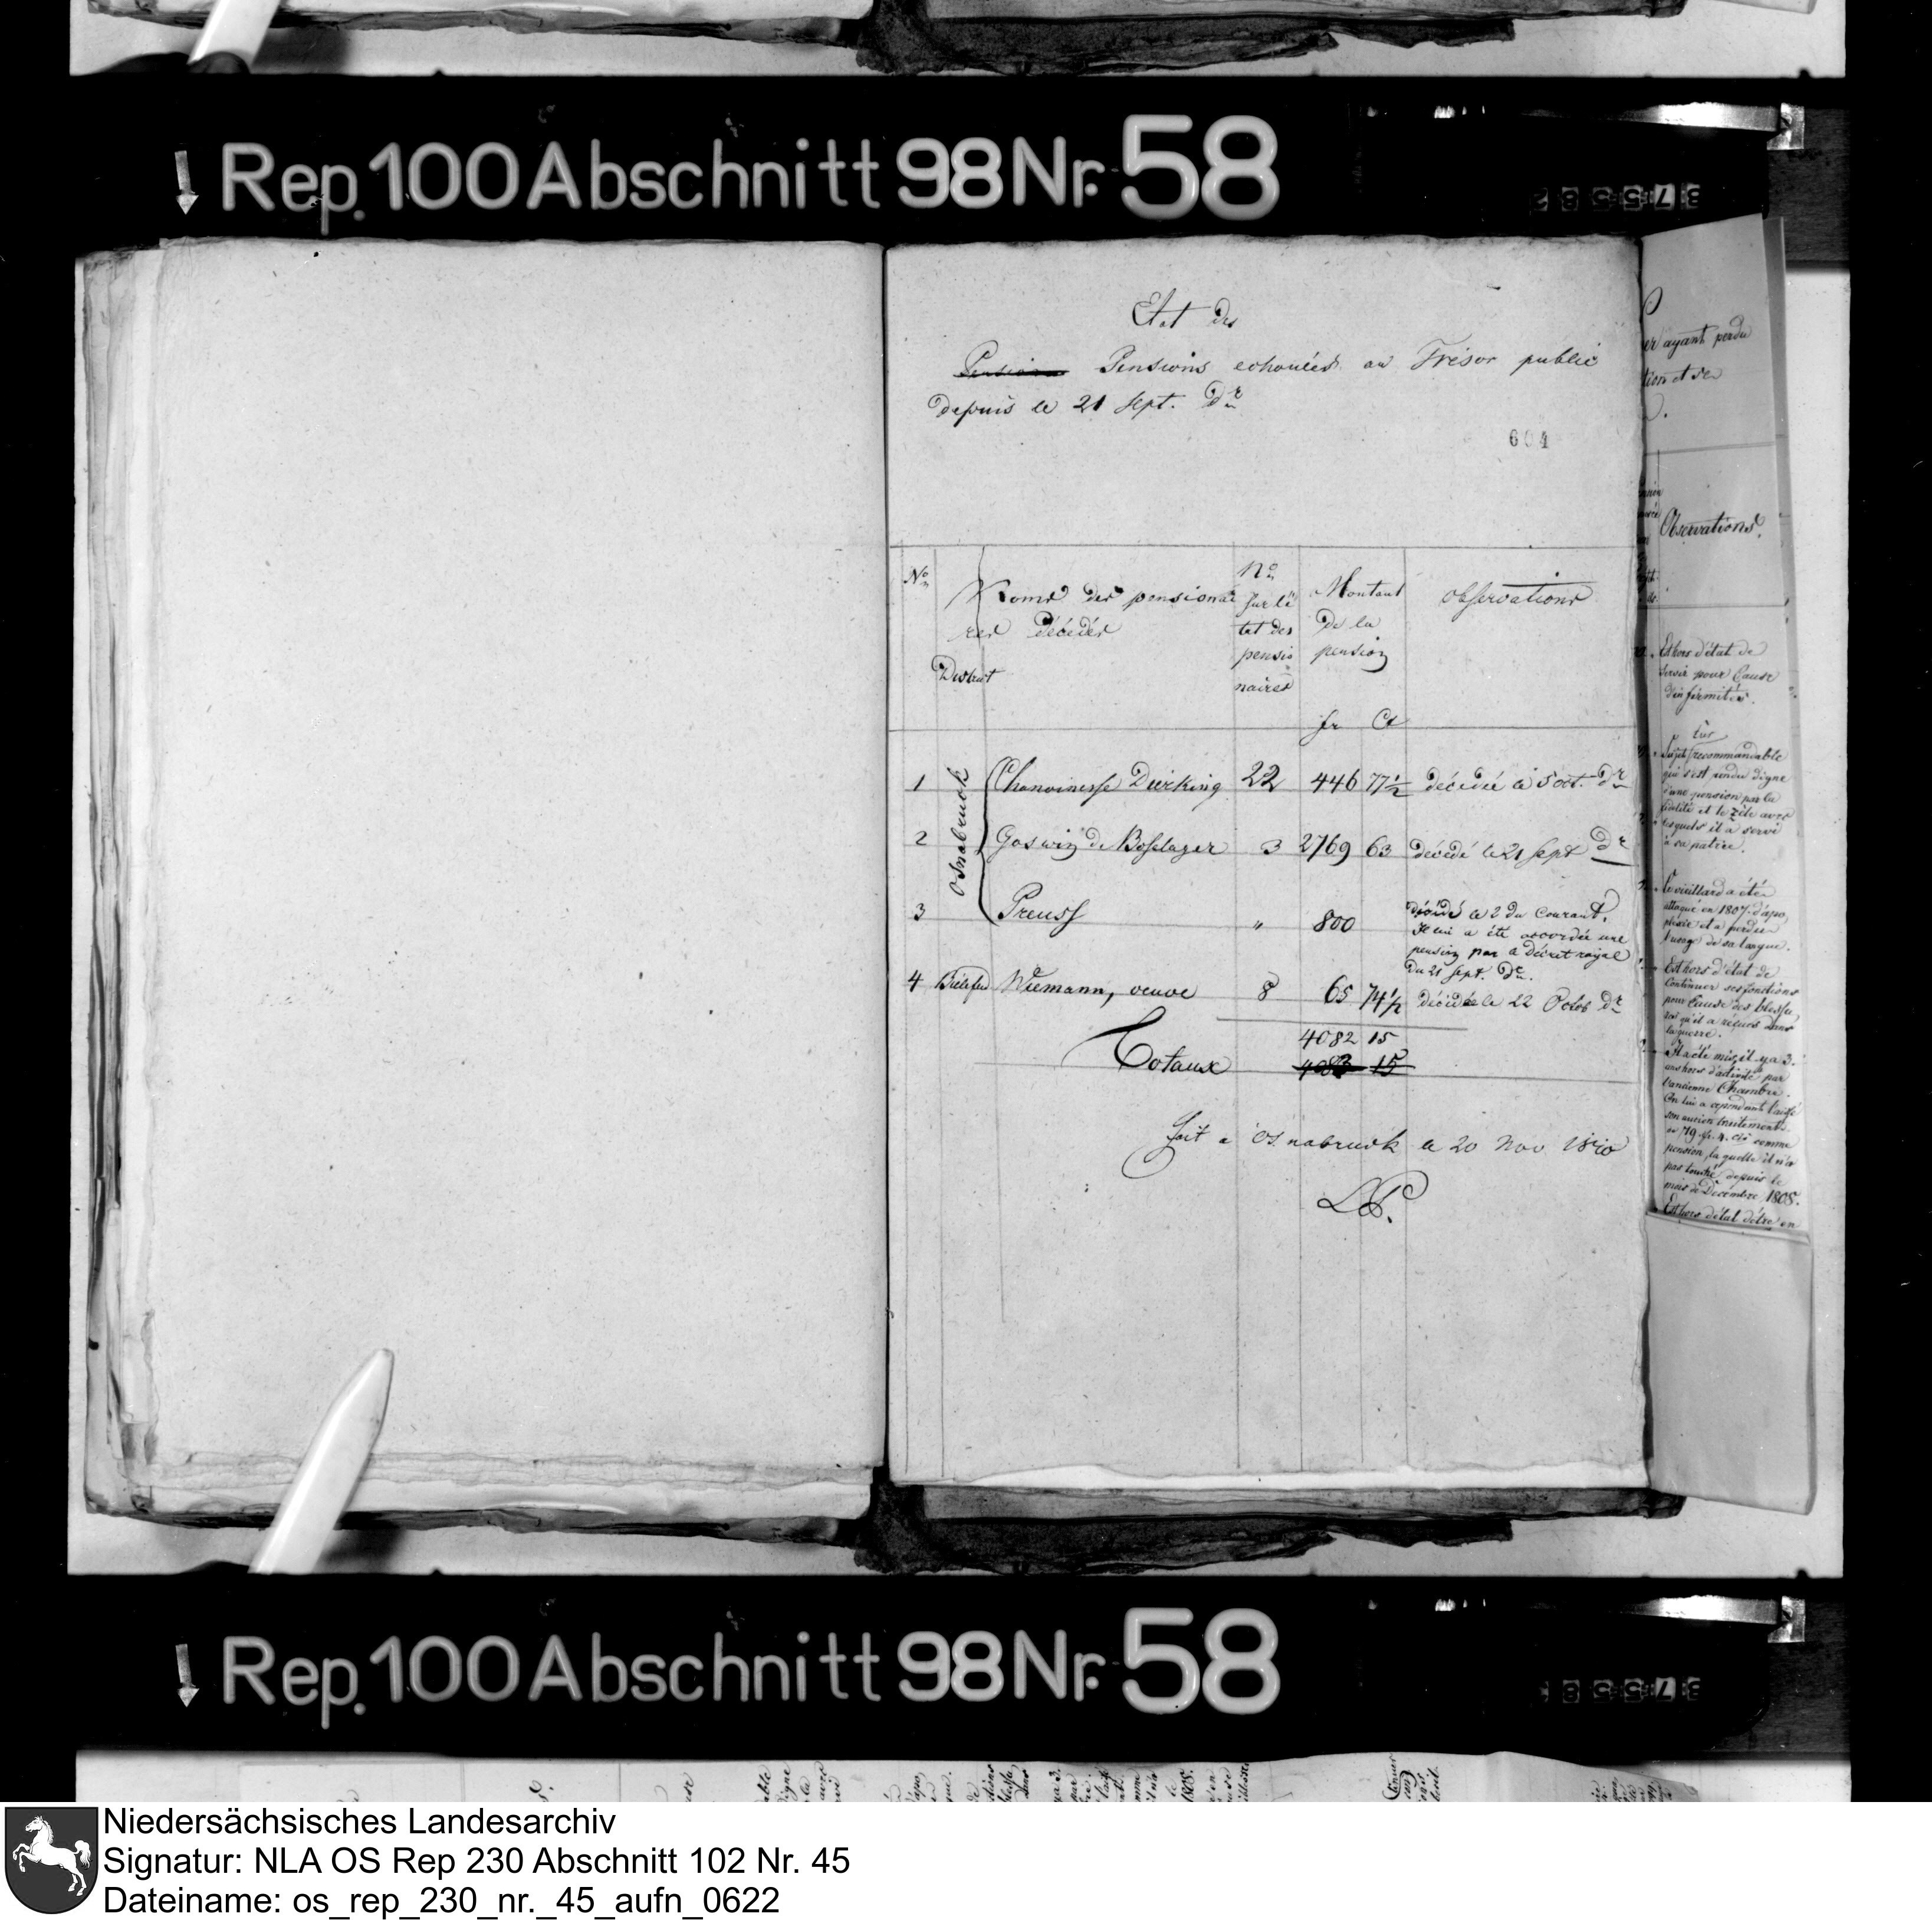 Rep. 100 Abschnitt 98 Nr. 58
Etat des
Pensions echouées au Trésor public
depuis le 21 Sept. Dr
604
No
Noms des pensionai
res décédés
District
No
sur l'é
tat des
pensio
naires
Montant
de la
pension
fr Ct
observations
Osnabruck
1 Chanoinesse Dierking 22 446 77 1/2 décédée le 5 oct. Dr
2 Goswin de Böselager 3 2769 63 décédé le 21 Sept Dr
3 Preuss " 800 décédé le 2 du Courant.
Il lui a été accordée une
pension par le décret royal
du 21 Sept. Dr.
4 Bielefeld Wiemann, veuve 8 65 74 1/2 décédée le 22 Octob Dr
4082 15
Totaux 4083 15
fait à Osnabruck le 20 Nov 1810
er ayant perdu
tion et ses
Observations.
Est hors d'état de
servir pour Cause
d'infirmités.
Sujet recommandable
qui s'est rendu digne
d'une pension par la
fidélité et le zèle avec
lesquels il a servi
à sa patrie.
Ce vieillard a été
attaqué en 1807 d'apo
plexie et a perdu
l'usage de sa langue.
Est hors d'état de
Continuer ses fonctions
pour Cause des blessu
res qu'il a reçues dans
la guerre.
Il a été mis, il y a 3
ans hors d'activité par
l'ancienne Chambre.
On lui a cependant laissé
son ancien traitement
de 79 fr. 4 Cts comme
pension, laquelle il n'a
pas touché depuis le
mois de Decembre 1808.
Est hors d'état d'être en
Rep. 100 Abschnitt 98 Nr. 58
Niedersächsisches Landesarchiv
Signatur: NLA OS Rep 230 Abschnitt 102 Nr. 45
Dateiname: os_rep_230_nr._45_aufn_0622